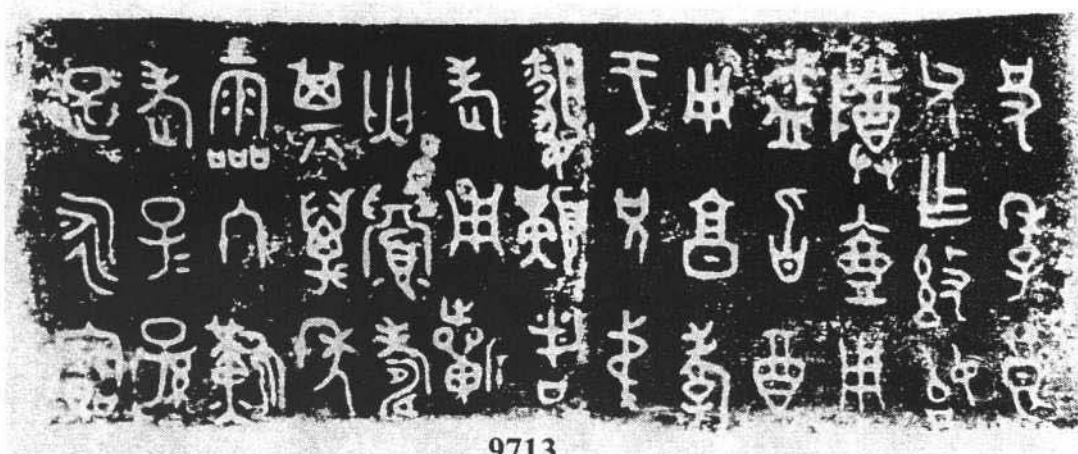 殳季良
父乍始
尊壺用
盛旨酉
用享孝
于兄弟
婚媾者
老用祈
匄眉壽
其萬年
霝冬難
老子=孫=
是永寶
9713